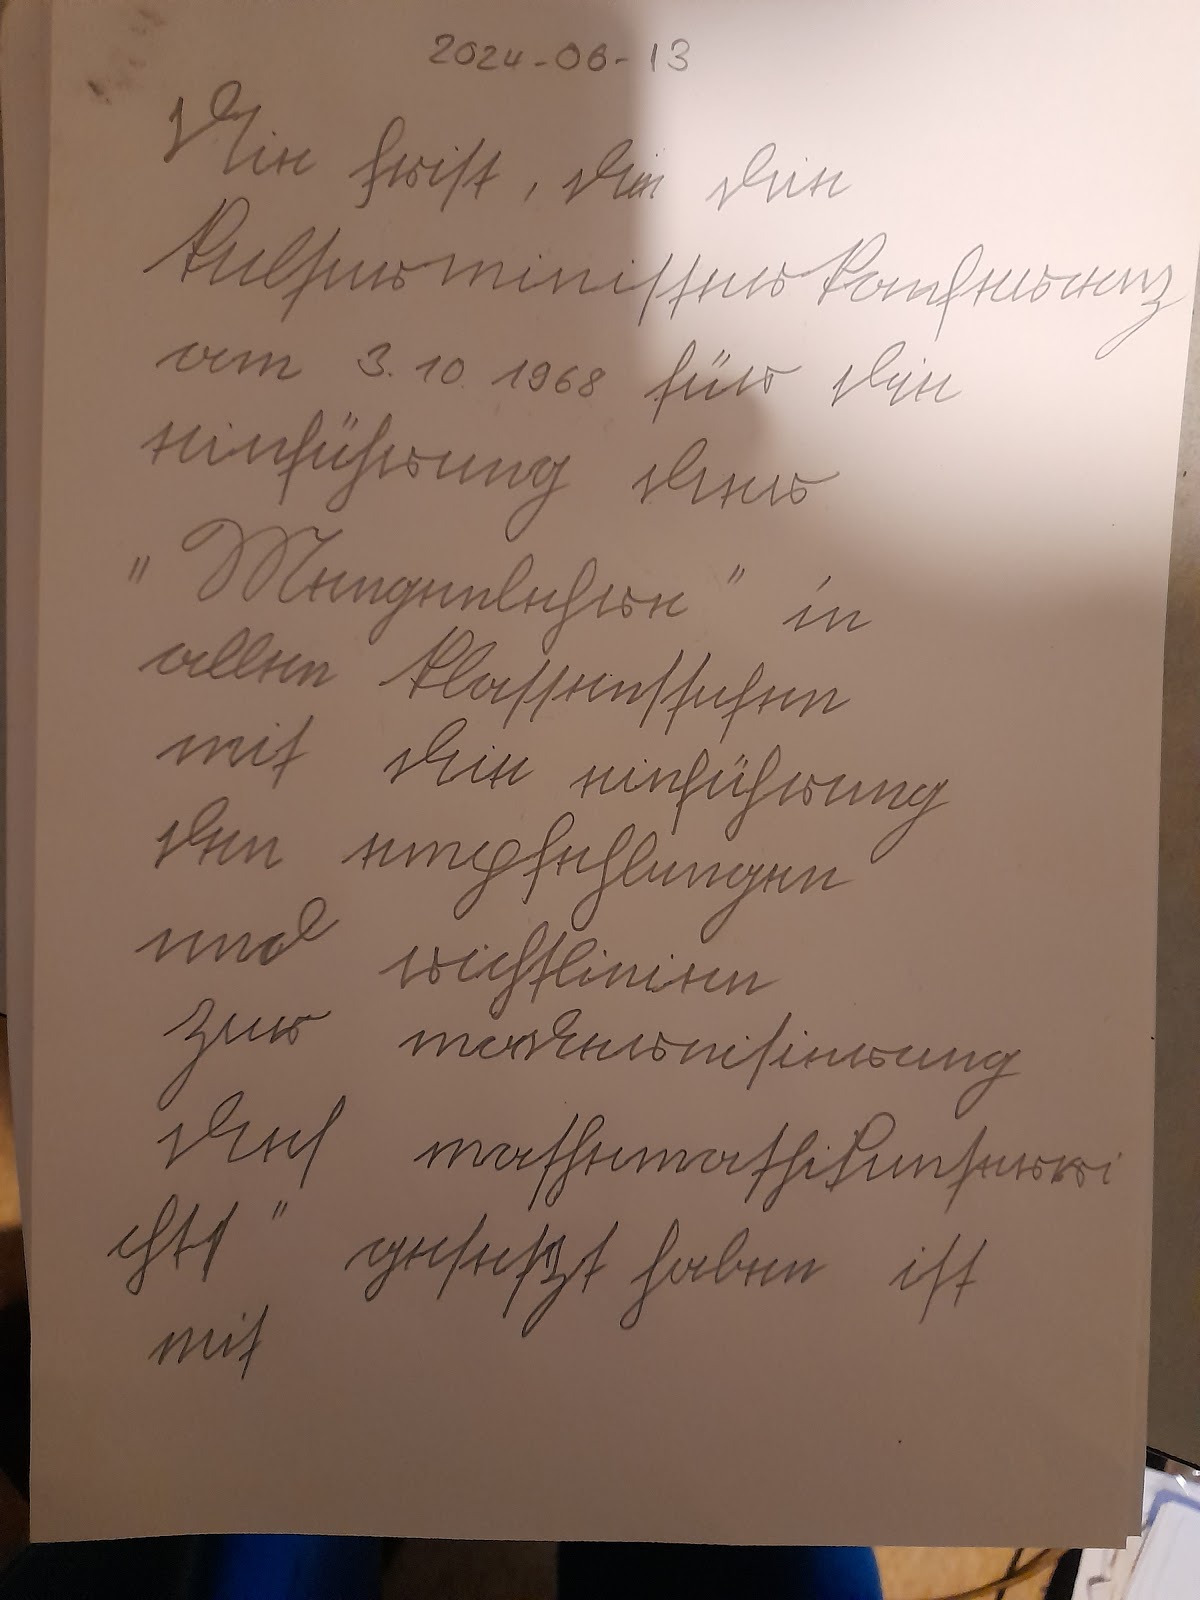 2024-06-13
Die frist, die die
Kulturministerkonferenz
am 3.10.1968 für die
einführung der
"Mengenlehre" in
allen klassenstufen
mit die einführung
den empfehlungen
und richtlinien
zur modernisierung
des mathemathikunterri
chts" gesetzt haben ist
mit